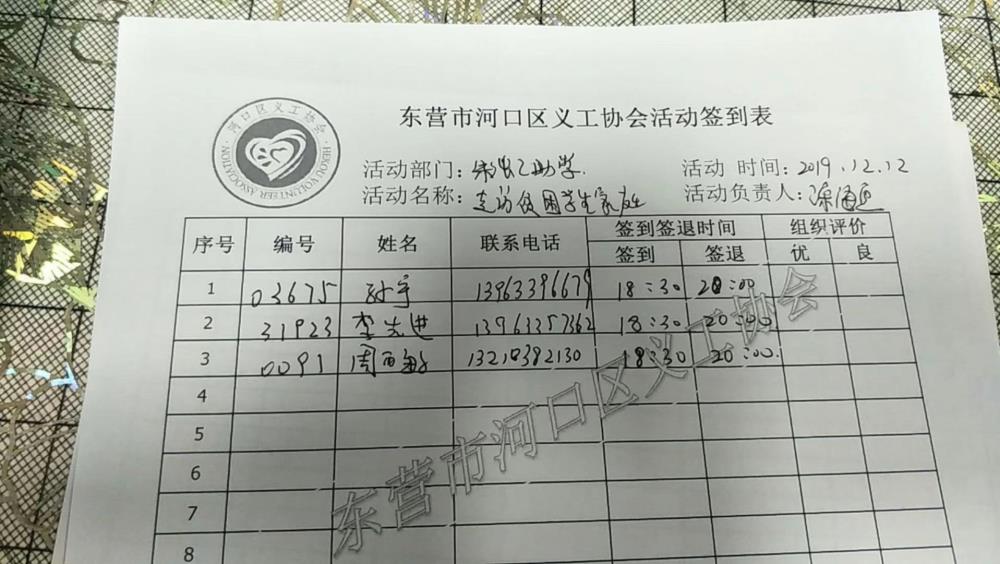 东营市河口区义工协会活动签到表
河口区义工协会
HEKOU VOLUNTEER ASSOCIATION
活动部门: 助学 活动 时间: 2019.12.12
活动名称: 走访贫困学生家庭 活动负责人:
序号 编号 姓名 联系电话 签到签退时间 组织评价
签到 签退 优 良
1 03675 孙宇 13963396679 18:30 20:00
2 31923 李先进 13963357362 18:30 20:00
3 0091 周 13210382130 18:30 20:00
4
5
6
7
8
东营市河口区义工协会